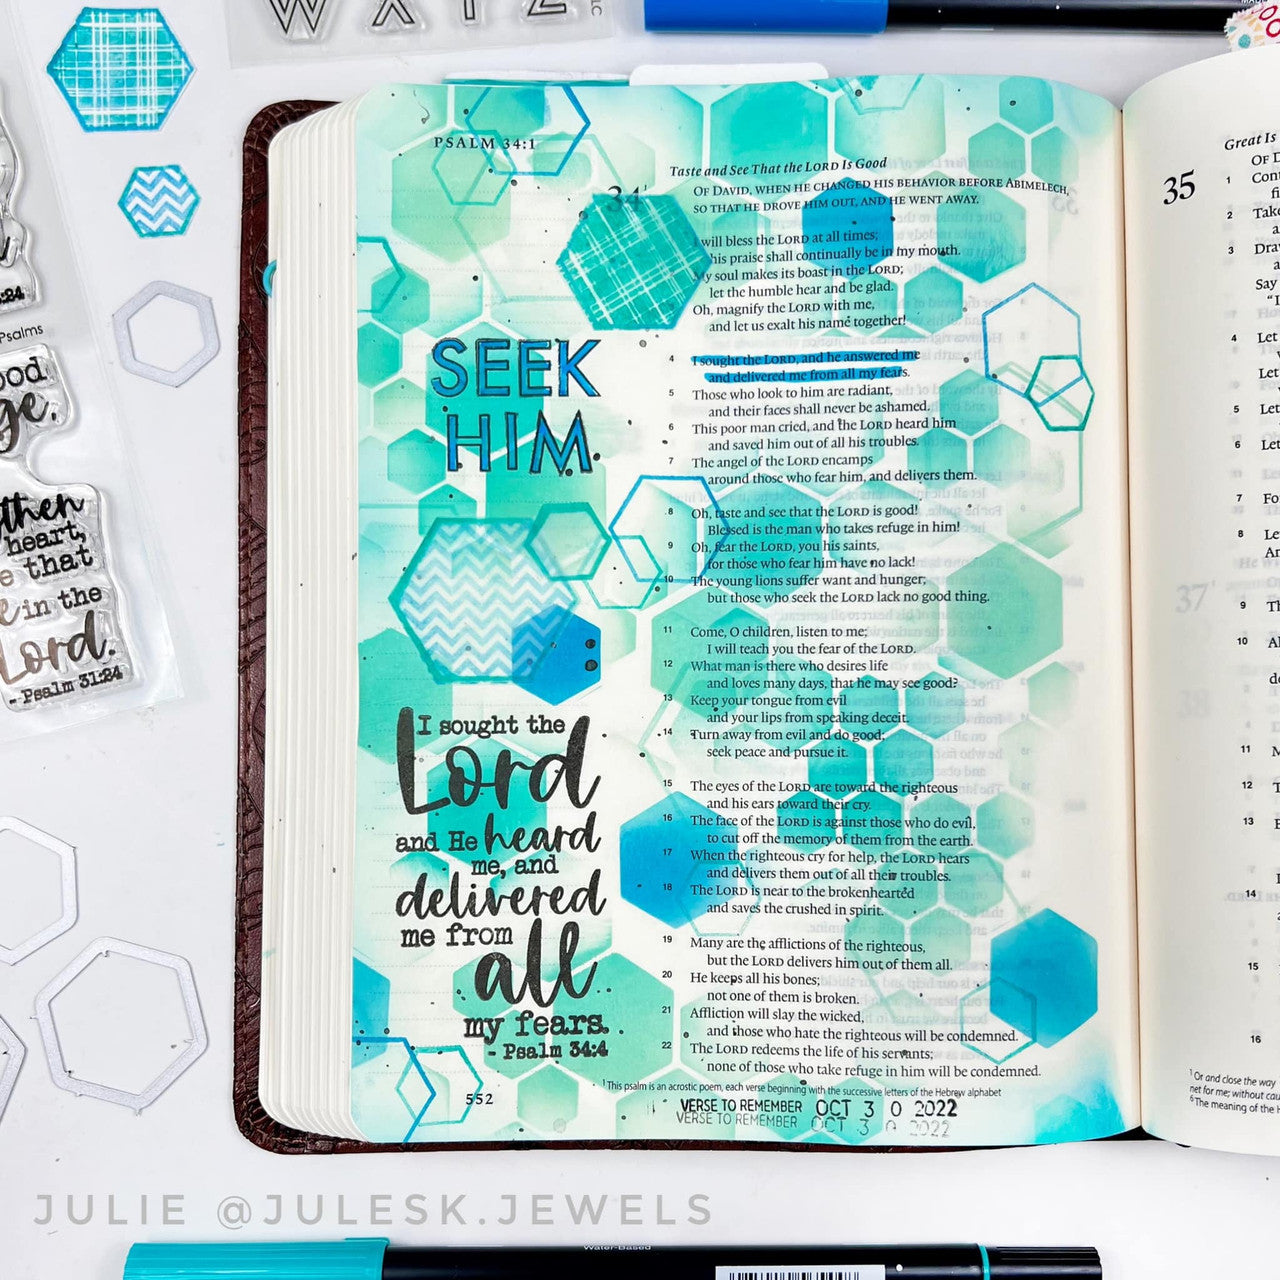 W X Y Z
LLC
PSALM 34:1
Taste and See That the LORD Is Good
34¹
OF DAVID, WHEN HE CHANGED HIS BEHAVIOR BEFORE ABIMELECH,
SO THAT HE DROVE HIM OUT, AND HE WENT AWAY.
I will bless the LORD at all times;
his praise shall continually be in my mouth.
My soul makes its boast in the LORD;
let the humble hear and be glad.
Oh, magnify the LORD with me,
and let us exalt his name together!
4 I sought the LORD, and he answered me
and delivered me from all my fears.
5 Those who look to him are radiant,
and their faces shall never be ashamed.
6 This poor man cried, and the LORD heard him
and saved him out of all his troubles.
7 The angel of the LORD encamps
around those who fear him, and delivers them.
8 Oh, taste and see that the LORD is good!
Blessed is the man who takes refuge in him!
9 Oh, fear the LORD, you his saints,
for those who fear him have no lack!
10 The young lions suffer want and hunger;
but those who seek the LORD lack no good thing.
11 Come, O children, listen to me;
I will teach you the fear of the LORD.
12 What man is there who desires life
and loves many days, that he may see good?
13 Keep your tongue from evil
and your lips from speaking deceit.
14 Turn away from evil and do good;
seek peace and pursue it.
15 The eyes of the LORD are toward the righteous
and his ears toward their cry.
16 The face of the LORD is against those who do evil,
to cut off the memory of them from the earth.
17 When the righteous cry for help, the LORD hears
and delivers them out of all their troubles.
18 The LORD is near to the brokenhearted
and saves the crushed in spirit.
19 Many are the afflictions of the righteous,
but the LORD delivers him out of them all.
20 He keeps all his bones;
not one of them is broken.
21 Affliction will slay the wicked,
and those who hate the righteous will be condemned.
22 The LORD redeems the life of his servants;
none of those who take refuge in him will be condemned.
¹This psalm is an acrostic poem, each verse beginning with the successive letters of the Hebrew alphabet
VERSE TO REMEMBER OCT 3 0 2022
VERSE TO REMEMBER OCT 3 0 2022
SEEK
HIM
I sought the
Lord
and He heard
me, and
delivered
me from
all
my fears.
- Psalm 34:4
552
:24
Psalms
heart,
that
in the
Lord.
- Psalm 31:24
Great Is
35
OF D
1
2 Take
3
Say
4 Let
Let
5 Let
6 Let
7
8
9
10
11
12
13
14
15
16
¹Or and close the way
net for me; without cau
⁶The meaning of the H
JULIE @JULESK.JEWELS
Water-Based